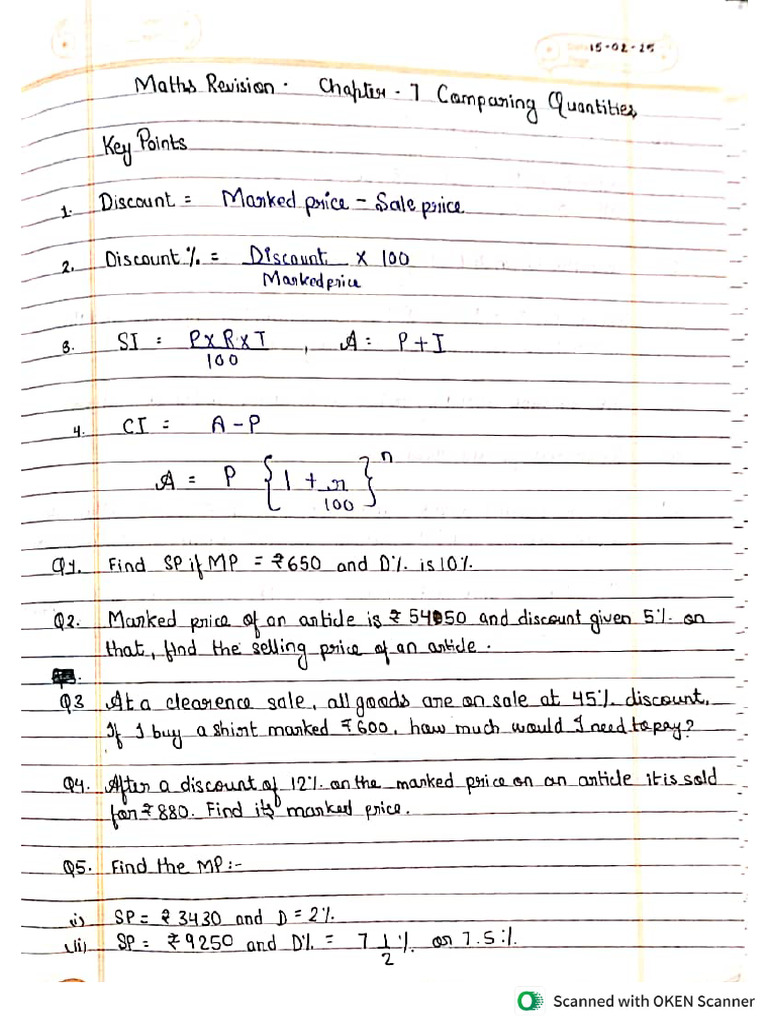 15-02-25
Maths Revision. Chapter-7 Comparing Quantities
Key Points
1. Discount = Marked price - Sale price
2. Discount % = Discount × 100
Marked price
3. SI = P×R×T , A = P+I
100
4. CI = A-P
A = P {1 + r}^n
100
Q1. Find SP if MP = ₹650 and D% is 10%.
Q2. Marked price of an article is ₹ 5450 and discount given 5% on
that, find the selling price of an article.
Q3 At a clearence sale, all goods are on sale at 45% discount.
If I buy a shirt marked ₹600, how much would I need to pay?
Q4. After a discount of 12% on the marked price on an article it is sold
for ₹880. Find its marked price.
Q5. Find the MP:-
i) SP = ₹ 3430 and D = 2%.
ii) SP = ₹9250 and D% = 7 1/2 % or 7.5%.
Scanned with OKEN Scanner